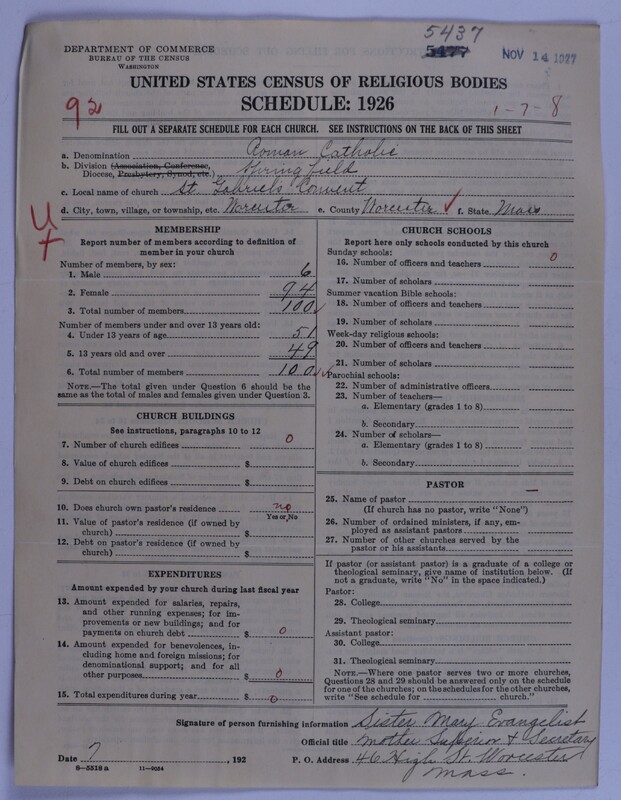 5437
5477
NOV 14 1927
DEPARTMENT OF COMMERCE
BUREAU OF THE CENSUS
WASHINGTON
UNITED STATES CENSUS OF RELIGIOUS BODIES
SCHEDULE: 1926
92
1-7-8
FILL OUT A SEPARATE SCHEDULE FOR EACH CHURCH. SEE INSTRUCTIONS ON THE BACK OF THIS SHEET
a. Denomination Roman Catholic
b. Division (Association, Conference,
Diocese, Presbytery, Synod, etc.) Springfield
c. Local name of church St. Gabriels Convent
d. City, town, village, or township, etc. Worcester e. County Worcester ✓ f. State Mass
MEMBERSHIP
Report number of members according to definition of
member in your church
Number of members, by sex:
1. Male 6
2. Female 94
3. Total number of members 100 ✓
Number of members under and over 13 years old:
4. Under 13 years of age 51
5. 13 years old and over 49
6. Total number of members 100 ✓
NOTE.—The total given under Question 6 should be the
same as the total of males and females given under Question 3.
CHURCH BUILDINGS
See instructions, paragraphs 10 to 12
7. Number of church edifices 0
8. Value of church edifices $
9. Debt on church edifices $
10. Does church own pastor's residence no
Yes or No
11. Value of pastor's residence (if owned by
church) $
12. Debt on pastor's residence (if owned by
church) $
EXPENDITURES
Amount expended by your church during last fiscal year
13. Amount expended for salaries, repairs,
and other running expenses; for im-
provements or new buildings; and for
payments on church debt $ 0
14. Amount expended for benevolences, in-
cluding home and foreign missions; for
denominational support; and for all
other purposes $ 0
15. Total expenditures during year $ 0
CHURCH SCHOOLS
Report here only schools conducted by this church
Sunday schools:
16. Number of officers and teachers 0
17. Number of scholars
Summer vacation Bible schools:
18. Number of officers and teachers
19. Number of scholars
Week-day religious schools:
20. Number of officers and teachers
21. Number of scholars
Parochial schools:
22. Number of administrative officers
23. Number of teachers—
a. Elementary (grades 1 to 8)
b. Secondary
24. Number of scholars—
a. Elementary (grades 1 to 8)
b. Secondary
PASTOR
25. Name of pastor —
(If church has no pastor, write "None")
26. Number of ordained ministers, if any, em-
ployed as assistant pastors
27. Number of other churches served by the
pastor or his assistants
If pastor (or assistant pastor) is a graduate of a college or
theological seminary, give name of institution below. (If
not a graduate, write "No" in the space indicated.)
Pastor:
28. College
29. Theological seminary
Assistant pastor:
30. College
31. Theological seminary
NOTE.—Where one pastor serves two or more churches,
Questions 28 and 29 should be answered only on the schedule
for one of the churches; on the schedules for the other churches,
write "See schedule for church."
Signature of person furnishing information Sister Mary Evangelist
Official title Mother Superior & Secretary
Date 7 , 192 P. O. Address 46 High St. Worcester
Mass.
6—5518 a 11—9054